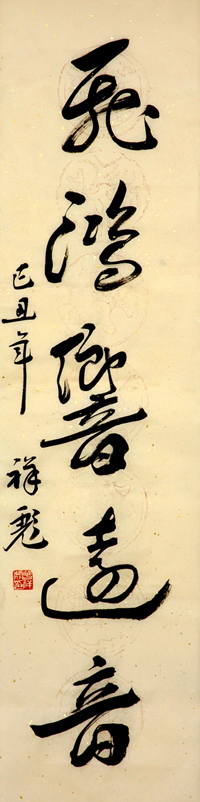 飛鴻響遠音
己丑年 祥彪